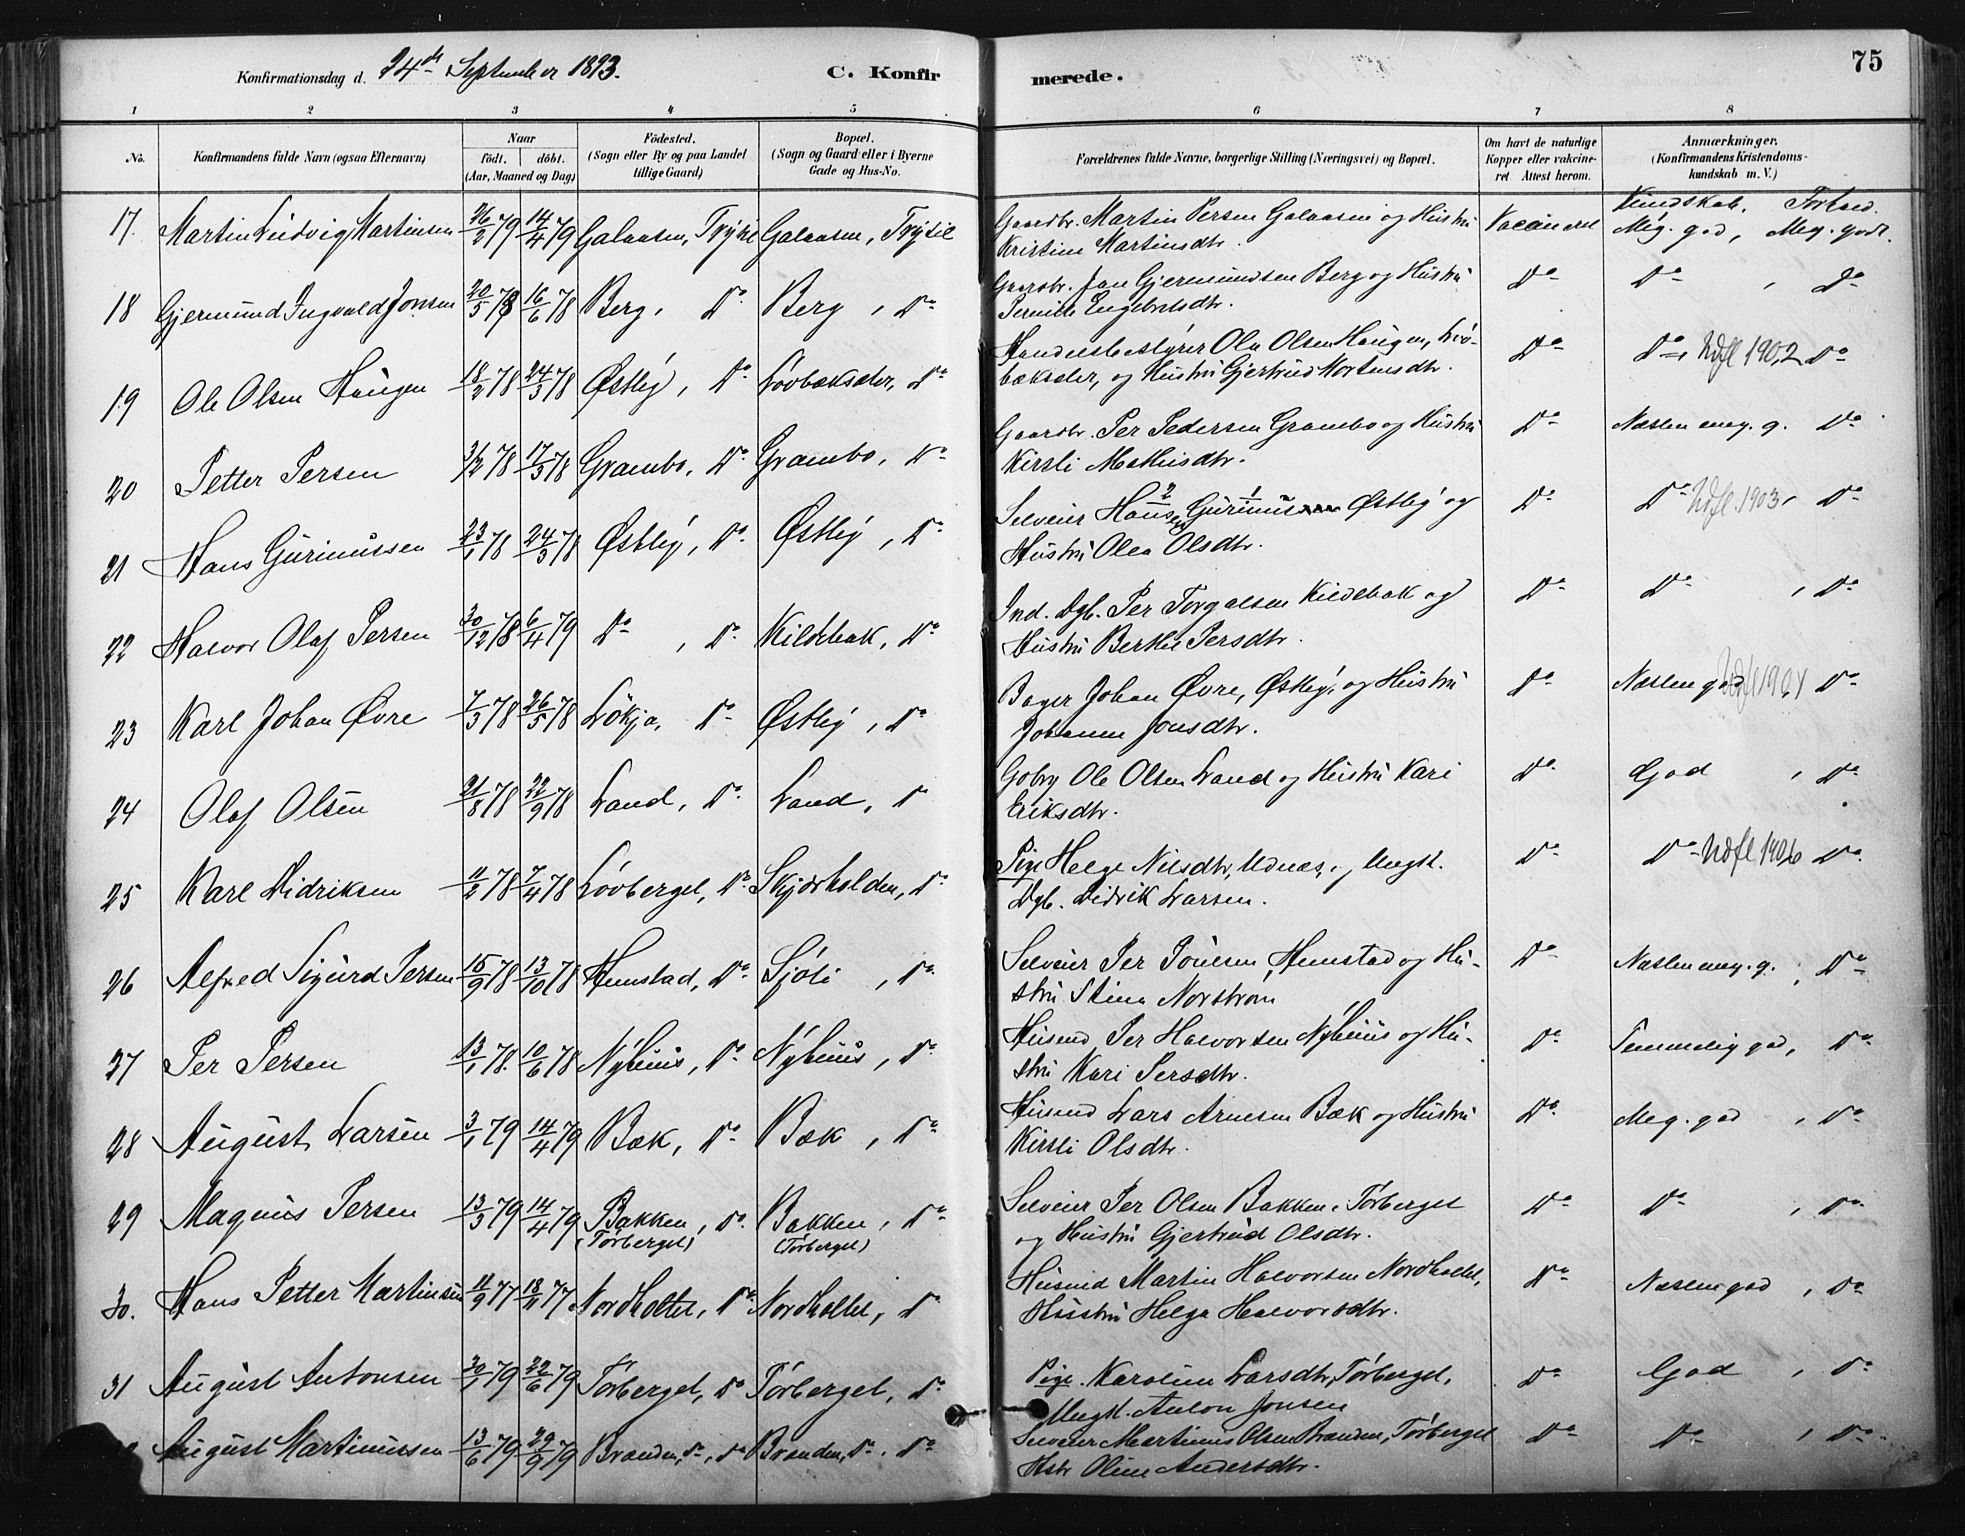 75
Konfirmationsdag d. 24de September 1893. C. Konfir merede.
1 2 3 4 5 6 7 8
No. Konfirmandens fulde Navn (ogsaa Efternavn) Naar födt. döbt. (Aar, Maaned og Dag) Födested. (Sogn eller By og paa Landet tillige Gaard) Bopæl. (Sogn og Gaard eller i Byerne Gade og Hus-No. Forældrenes fulde Navne, borgerlige Stilling (Næringsvei) og Bopæl. Om havt de naturlige Kopper eller vakcineret Attest herom. Anmærkninger. (Konfirmandens Kristendomskundskab m. V.)
Kundskab. Forhold.
17. Martin Ludvig Martinsen 26/2 79 14/4 79 Galaasen, Trysil Galaasen, Trysil Gaardbr. Martin Persen Galaasen og Hustru Vaccineret Meg. god, Meg. godt.
Kristine Martinsdtr.
18 Gjermund Ingvald Jonsen 20/5 78 16/6 78 Berg, Do Berg, Do Gaardbr. Jon Gjermundsen Berg og Hustru Do Do, Do
Pernille Engebretsdtr.
19 Ole Olsen Haugen 18/2 78 24/3 78 Østby, Do Lövbæksæter, Do Handelsbestyrer Ola Olsen Haugen, Löv- Do Do, Udfl 1902 Do
bæksæter, og Hustru Gjertrud Mortensdtr.
20 Petter Persen 17/3 78 Grambo, Do Grambo, Do Gaardbr. Per Pedersen Grambo og Hustru Do Næsten meg. g. Do
Kirsti Mathisdtr.
21 Hans Gurinussen 23/1 78 24/3 78 Østby, Do Østby, Do Selveier Hansen Gurinus Østby og Do Do Udfl 1903, Do
Hustru Olea Olsdtr.
22 Halvor Olaf Persen 30/12 78 6/4 79 Do, Do Kildebak, Do Ind. Dgb. Per Torgalsen Kildebak og Do Do, Do
Hustru Berthe Persdtr.
23 Karl Johan Øvre 7/3 78 26/5 78 Lökja, Do Østby, Do Bager Johan Øvre, Østby, og Hustru Do Næsten god Do
Johanne Jonsdtr.
24 Olaf Olsen 21/8 78 22/9 78 Land, Do Land, D Gbr Ole Olsen Land og Hustru Kari Do God, Do
Eriksdtr.
25 Karl Didriksen 11/2 78 7/4 78 Lövberget, Do Skjærholden, Do Pige Helge Nilsdtr, Udnæs, og Ungk. Do Do Udfl 1906 Do
Dgb. Didrik Larsen.
26 Alfred Sigurd Persen 15/9 78 13/10 78 Hemstad, Do Sjöli, Do Selveier Per Hemstad og Hu- Do Næsten meg. g., Do
stru Stina Norström
27 Per Persen 13/1 78. 10/6 78 Nyhuus, Do Nyhuus, Do Husmd Per Halvorsen Nyhuus og Hu- Do Temmelig god, Do
stru Kari Persdtr.
28 August Larsen 3/1 79 14/4 79 Bæk, Do Bæk, Do Husmd Lars Arnesen Bæk og Hustru Do Meg. god, Do
Kirsti Olsdtr.
29 Magnus Persen 13/3 79 14/4 79 Bakken, Do (Törberget) Bakken, Do (Törberget) Selveier Per Olsen Bakken, Törberget Do Do, Do
og Hustru Gjertrud Olsdtr.
30. Hans Petter Martinsen 11/9 77 18/11 77 Nordholtet, Do Nordholtet, Do Husmd Martin Halvorsen Nordholtet, Do Næsten god, Do
Hustru Helga Halvorsdtr.
31 August Antonsen 30/1 79 22/6 79 Törberget, Do Törberget, Do Pige Karoline Larsdtr, Törberget, Do God, Do
Ungk. Anton Jonsen
August Martinussen 13/6 79 29/9 79 Branden, Do, Do Branden, Do, Do Selveier Martinus Olsen Branden, Törberget Do Do, Do
Hstr Oline Andersdtr.